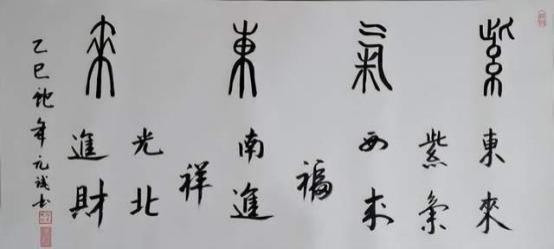 紫氣東來
東來
紫氣
西来
福
南進
祥
光北
進財
乙巳蛇年元誠书